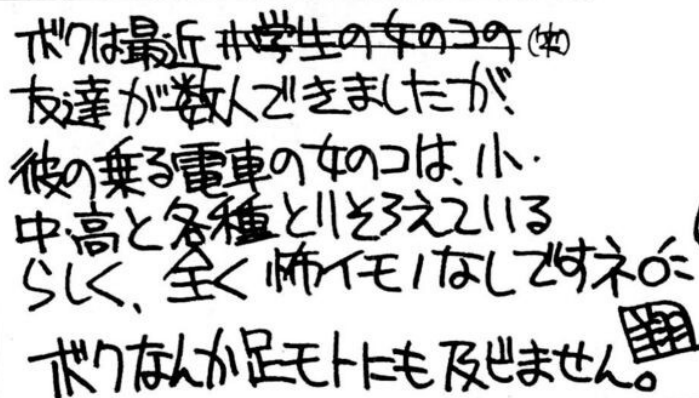 ボクは最近小学生の女のコの(笑)
友達が数人できましたが、
彼の乗る電車の女のコは、小・
中・高と各種とりそろえている
らしく、全く怖イモノなしですネ
ボクなんか足モトにも及びません。